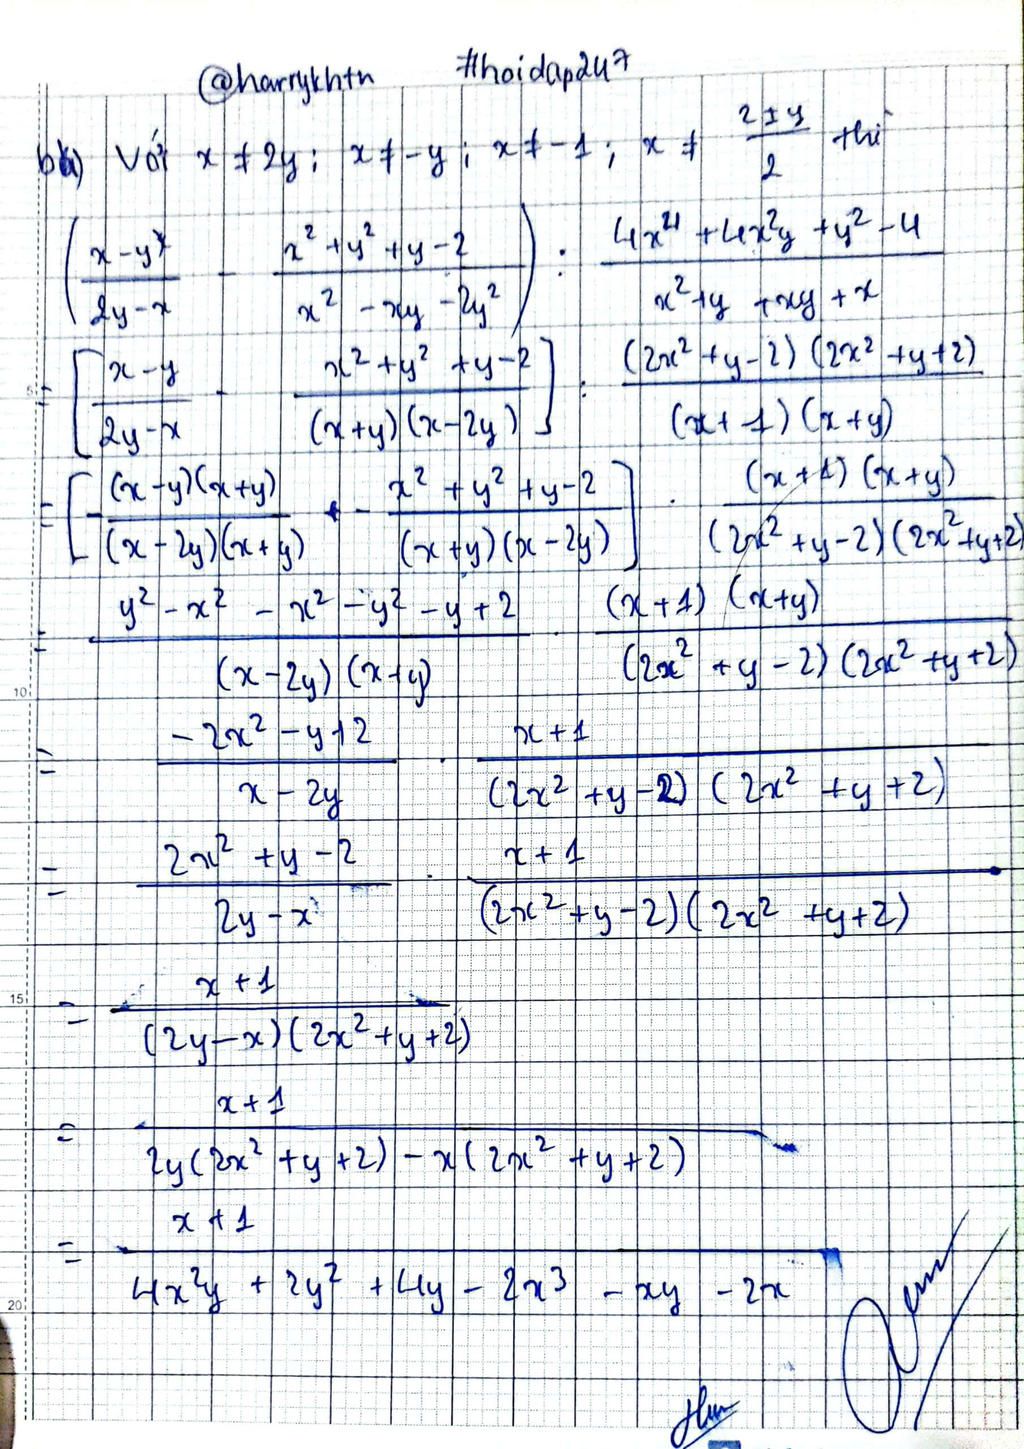 @harrykhtn #hoidap247
b) Với x ≠ 2y; x ≠ -y; x ≠ -1; x ≠ (2±y)/2 thì
((x-y)/(2y-x) - (x²+y²+y-2)/(x²-xy-2y²)) : (4x⁴+4x²y+y²-4)/(x²+y+xy+x)
5
= [(x-y)/(2y-x) - (x²+y²+y-2)/((x+y)(x-2y))] : ((2x²+y-2)(2x²+y+2))/((x+1)(x+y))
= [-((x-y)(x+y))/((x-2y)(x+y)) - (x²+y²+y-2)/((x+y)(x-2y))] . ((x+1)(x+y))/((2x²+y-2)(2x²+y+2))
= (y²-x²-x²-y²-y+2)/((x-2y)(x+y)) . ((x+1)(x+y))/((2x²+y-2)(2x²+y+2))
10
= (-2x²-y+2)/(x-2y) . (x+1)/((2x²+y-2)(2x²+y+2))
= (2x²+y-2)/(2y-x) . (x+1)/((2x²+y-2)(2x²+y+2))
15
= (x+1)/((2y-x)(2x²+y+2))
= (x+1)/(2y(2x²+y+2)-x(2x²+y+2))
= (x+1)/(4x²y+2y²+4y-2x³-xy-2x)
20